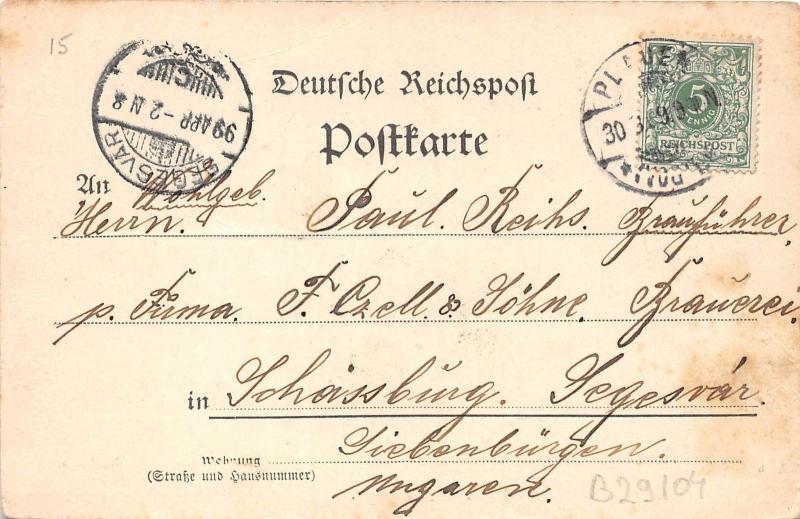 15
SEGESVÁR
99 APR -2 N 8
Deutsche Reichspost
Postkarte
PLAUEN
30
5
PFENNIG
REICHSPOST
An Wohlgeb.
Herrn. Paul. Reihs. Brauführer
p. Firma. F. Czell & Söhne. Brauerei.
in Schässburg. Segesvár.
Siebenbürgen.
Wohnung
(Straße und Hausnummer)
Ungaren.
B29104